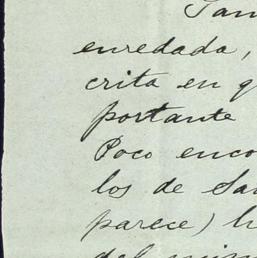 Tam
enredada,
crita en q
portante
Poco enco
los de Sa
parece) h
del mism